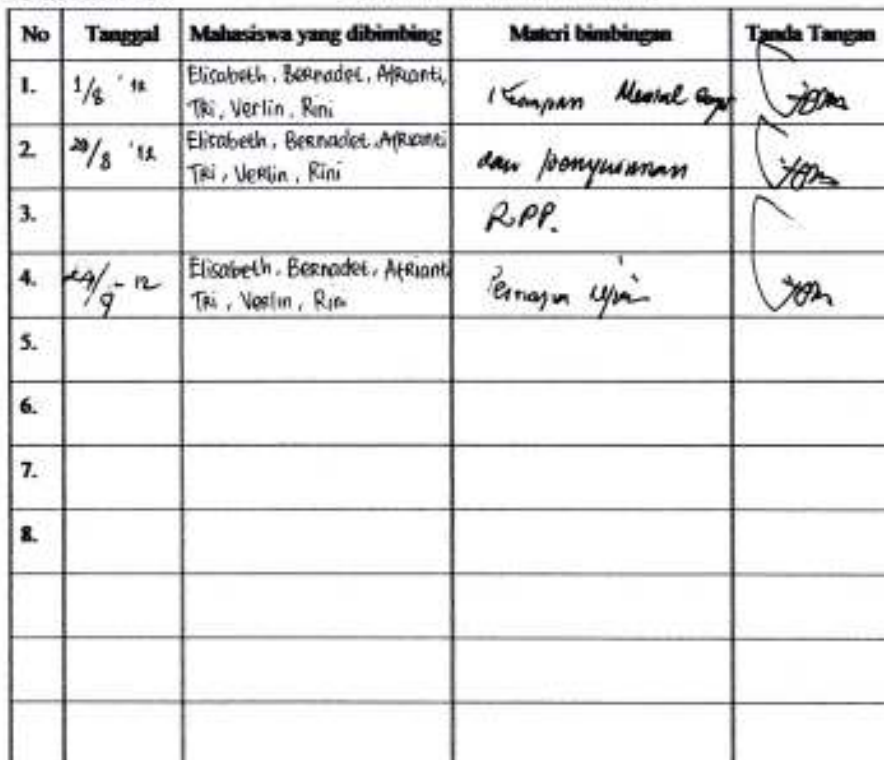 No Tanggal Mahasiswa yang dibimbing Materi bimbingan Tanda Tangan
1. 1/8 '12 Elisabeth, Bernadet, Afrianti,
Tri, Verlin, Rini
2. 28/8 '12 Elisabeth, Bernadet, Afrianti
Tri, Verlin, Rini dan penyusunan
3. RPP.
4. 9-12 Elisabeth, Bernadet, Afrianti
Tri, Verlin, Rini
5.
6.
7.
8.